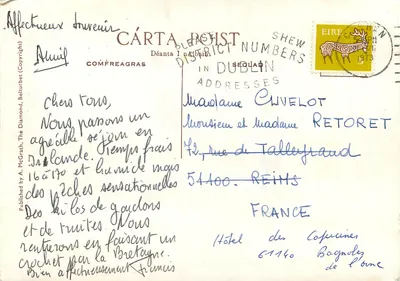 Affectueux souvenir
CÁRTA POIST
Déanta i
COMFREAGRAS
SEOLADH
PLEASE SHEW
DISTRICT NUMBERS
IN DUBLIN
ADDRESSES
EIRE
Published by A. McGrath, The Diamond, (Copyright)
Chers tous,
Nous passons un
agréable séjour en
Irlande. Temps frais
16 à 20 et humide mais
des pêches sensationnelles
Des kilos de gardons
et de truites. Nous
rentrerons en faisant un
crochet par la Bretagne.
Bien affectueusement Francis
Madame CLIVELOT
Monsieur et Madame RETORET
72, rue de Talleyrand
51100. REIMS
FRANCE
Hôtel des Capucines
61140 Bagnoles
de l'orne